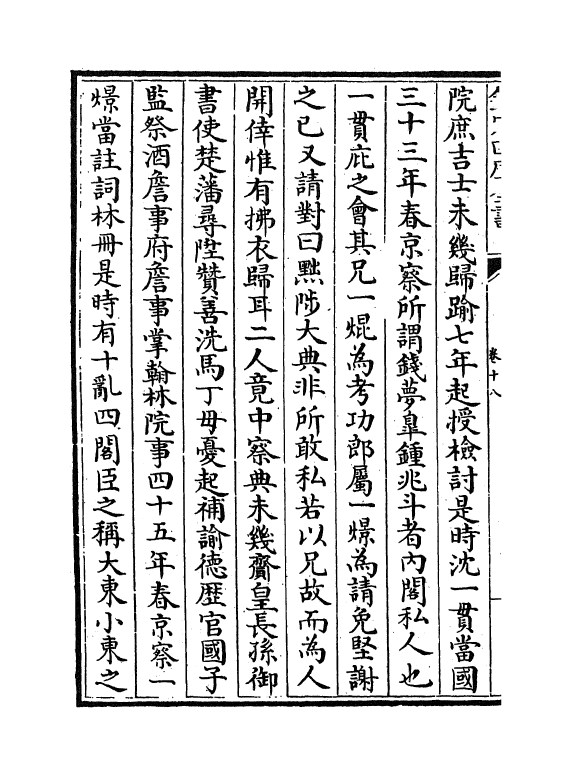 院庶吉士未幾歸踰七年起授檢討是時沈一貫當國
三十三年春京察所謂錢夢臯鍾兆斗者內閣私人也
一貫庇之會其兄一焜為考功郎屬一燝為請免堅謝
之已又請對曰黜陟大典非所敢私若以兄故而為人
開倖惟有拂衣歸耳二人竟中察典未幾齎皇長孫御
書使楚藩尋陞贊善洗馬丁母憂起補諭德歷官國子
監祭酒詹事府詹事掌翰林院事四十五年春京察一
燝當註詞林冊是時有十亂四閣臣之稱大東小東之
卷十八